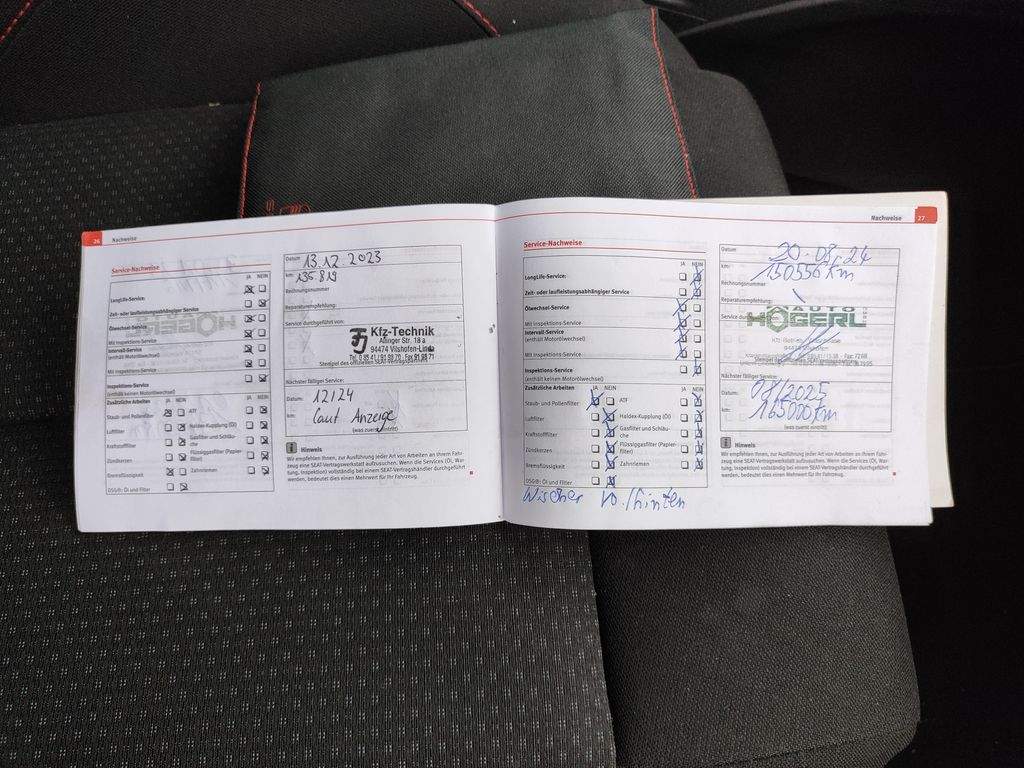 26 Nachweise
Service-Nachweise
JA NEIN
LongLife-Service:
Zeit- oder laufleistungsabhängiger Service
Ölwechsel-Service
Mit Inspektions-Service
Intervall-Service
(enthält Motorölwechsel)
Mit Inspektions-Service
Inspektions-Service
(enthält keinen Motorölwechsel)
Zusätzliche Arbeiten JA NEIN JA NEIN
Staub- und Pollenfilter ATF
Luftfilter Haldex-Kupplung (Öl)
Kraftstofffilter Gasfilter und Schläu-
che
Zündkerzen Flüssiggasfilter (Papier-
filter)
Bremsflüssigkeit Zahnriemen
DSG®: Öl und Filter
Datum 13.12.2023
km: 135.819
Rechnungsnummer
Reparaturempfehlung:
Service durchgeführt von:
Kfz-Technik
Aidinger Str. 18 a
94474 Vilshofen-Linda
Stempel des offiziellen SEAT-Vertragspartners
Nächster fälliger Service:
Datum: 12/24
km: laut Anzeige
(was zuerst eintritt)
Hinweis
Wir empfehlen Ihnen, zur Ausführung jeder Art von Arbeiten an Ihrem Fahr-
zeug eine SEAT-Vertragswerkstatt aufzusuchen. Wenn die Services (Öl, War-
tung, Inspektion) vollständig bei einem SEAT-Vertragshändler durchgeführt
werden, bedeutet dies einen Mehrwert für Ihr Fahrzeug.
Nachweise 27
Service-Nachweise
JA NEIN
LongLife-Service:
Zeit- oder laufleistungsabhängiger Service
Ölwechsel-Service
Mit Inspektions-Service
Intervall-Service
(enthält Motorölwechsel)
Mit Inspektions-Service
Inspektions-Service
(enthält keinen Motorölwechsel)
Zusätzliche Arbeiten JA NEIN JA NEIN
Staub- und Pollenfilter ATF
Luftfilter Haldex-Kupplung (Öl)
Kraftstofffilter Gasfilter und Schläu-
che
Zündkerzen Flüssiggasfilter (Papier-
filter)
Bremsflüssigkeit Zahnriemen
DSG®: Öl und Filter
Wischer vo./hinten
Datum 20.08.24
km: 150556 km
Rechnungsnummer
Reparaturempfehlung:
AUTO
HÖGERL
Nächster fälliger Service:
Datum: 08/2025
km: 165000 km
(was zuerst eintritt)
Hinweis
Wir empfehlen Ihnen, zur Ausführung jeder Art von Arbeiten an Ihrem Fahr-
zeug eine SEAT-Vertragswerkstatt aufzusuchen. Wenn die Services (Öl, War-
tung, Inspektion) vollständig bei einem SEAT-Vertragshändler durchgeführt
werden, bedeutet dies einen Mehrwert für Ihr Fahrzeug.